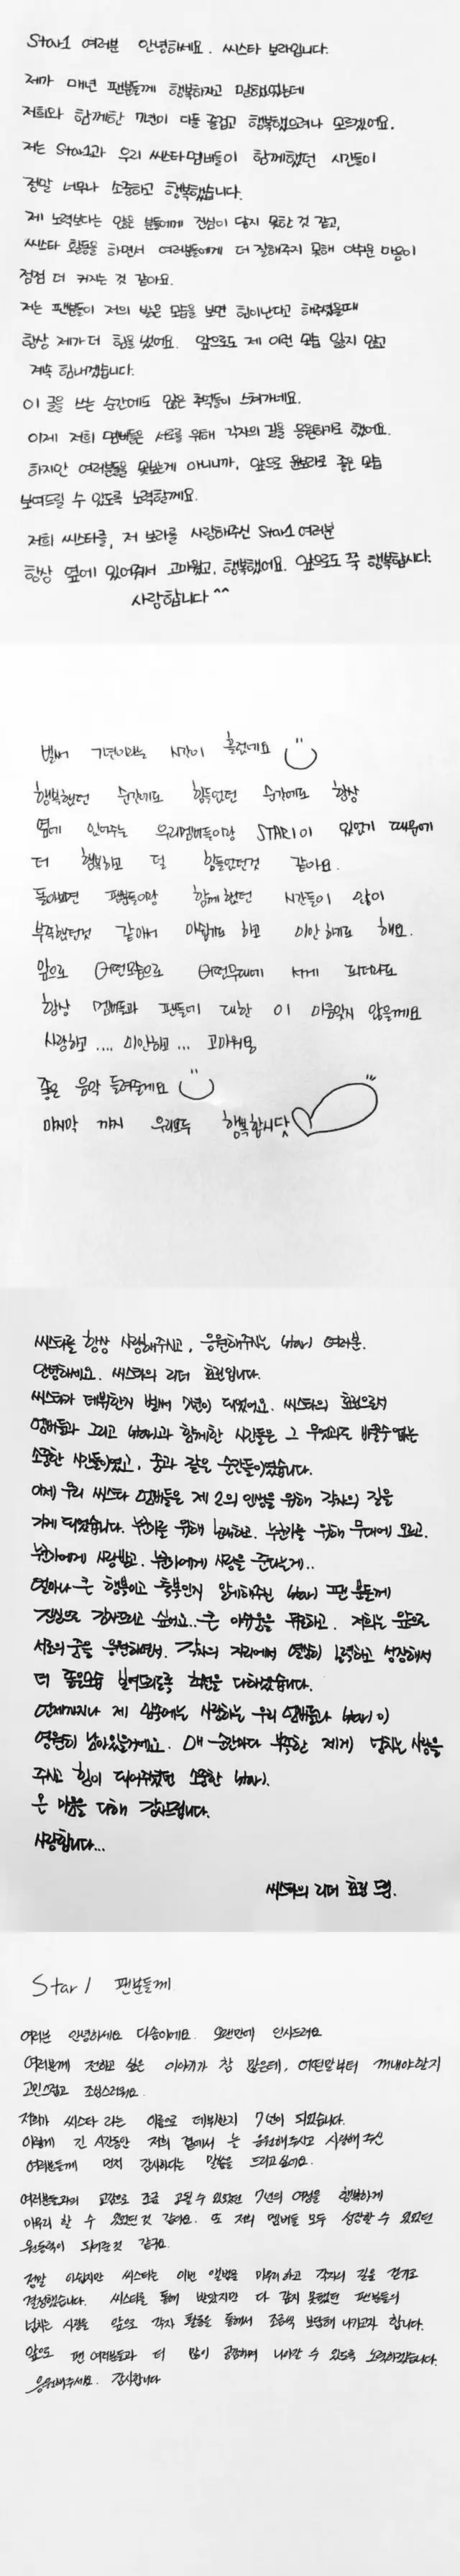 Star1 여러분 안녕하세요. 씨스타 보라입니다.
제가 매년 팬분들께 행복하자고 말했었는데
저희와 함께한 7년이 다들 즐겁고 행복했으려나 모르겠어요.
저는 Star1과 우리 씨스타 멤버들이 함께했던 시간들이
정말 너무나 소중하고 행복했습니다.
제 노력보다는 많은 분들에게 진심이 닿지 못한 것 같고,
씨스타 활동을 하면서 여러분들에게 더 잘해주지 못해 아쉬운 마음이
점점 더 커지는 것 같아요.
저는 팬분들이 저의 밝은 모습을 보면 힘이난다고 해주셨을때
항상 제가 더 힘을 냈어요. 앞으로도 제 이런 모습 잃지 않고
계속 힘내겠습니다.
이 글을 쓰는 순간에도 많은 추억들이 스쳐가네요.
이제 저희 멤버들은 서로를 위해 각자의 길을 응원하기로 했어요.
하지만 여러분들을 못보는게 아니니까, 앞으로 윤보라로 좋은 모습
보여드릴 수 있도록 노력할께요.
저희 씨스타를, 저 보라를 사랑해주신 Star1 여러분
항상 옆에 있어줘서 고마웠고, 행복했어요. 앞으로도 쭉 행복합시다.
사랑합니다^^
벌써 7년이라는 시간이 흘렀네요
행복했던 순간에도 힘들었던 순간에도 항상
옆에 있어주는 우리멤버들이랑 STAR1이 있었기 때문에
더 행복하고 덜 힘들었던것 같아요.
돌아보면 팬분들이랑 함께 했던 시간들이 많이
부족했던것 같아서 아쉽기도 하고 미안하기도 해요.
앞으로 어떤모습으로 어떤무대에 서게 되더라도
항상 멤버들과 팬들에 대한 이 마음잊지 않을께요
사랑하고 .... 미안하고 ... 고마워요
좋은 음악 들려줄게요
마지막 까지 우리모두 행복합시닷
씨스타를 항상 사랑해주시고, 응원해주시는 Star1 여러분.
안녕하세요. 씨스타의 리더 효린입니다.
씨스타가 데뷔한지 벌써 7년이 되었어요. 씨스타의 효린으로서
멤버들과 그리고 Star1과 함께한 시간들은 그 무엇과도 바꿀수 없는
소중한 시간들이였고, 꿈과 같은 순간들이였습니다.
이제 우리 씨스타 멤버들은 제 2의 인생을 위해 각자의 길을
가게 되었습니다. 누군가를 위해 노래하고. 누군가를 위해 무대에 오르고.
누군가에게 사랑받고. 누군가에게 사랑을 준다는게..
얼마나 큰 행복이고 축복인지 알게해주신 Star1 팬 분들께
진심으로 감사드리고 싶어요.. 큰 아쉬움을 뒤로하고. 저희는 앞으로
서로의 꿈을 응원하면서. 각자의 자리에서 열심히 노력하고 성장해서
더 좋은모습 보여드리도록 최선을 다하겠습니다.
언제까지나 제 맘속에는 사랑하는 우리 멤버들과 Star1이
영원히 남아있을거예요. 매 순간마다 부족한 제게 넘치는 사랑을
주시고 힘이 되어주셨던 소중한 Star1.
온 마음을 다해 감사드립니다.
사랑합니다...
씨스타의 리더 효린 드림.
Star1 팬분들께
여러분 안녕하세요 다솜이에요. 오랜만에 인사드려요
여러분께 전하고 싶은 이야기가 참 많은데, 어떤말부터 꺼내야할지
고민스럽고 조심스러워요.
저희가 씨스타 라는 이름으로 데뷔한지 7년이 되었습니다.
이렇게 긴 시간동안 저희 곁에서 늘 응원해주시고 사랑해 주신
여러분들께 먼저 감사하다는 말씀을 드리고싶어요.
여러분들과의 교감으로 조금 고될 수 있었던 7년의 여정을 행복하게
마무리 할 수 있었던 것 같아요. 또 저희 멤버들 모두 성장할 수 있었던
원동력이 되어준것 같구요.
정말 아쉽지만 씨스타는 이번 앨범을 마무리하고 각자의 길을 걷기로
결정했습니다. 씨스타를 통해 받았지만 다 갚지 못했던 팬분들의
넘치는 사랑을 앞으로 각자 활동을 통해서 조금씩 보답해 나가고자 합니다.
앞으로 팬 여러분들과 더 많이 공감하며 나아갈 수 있도록 노력하겠습니다.
응원해주세요. 감사합니다